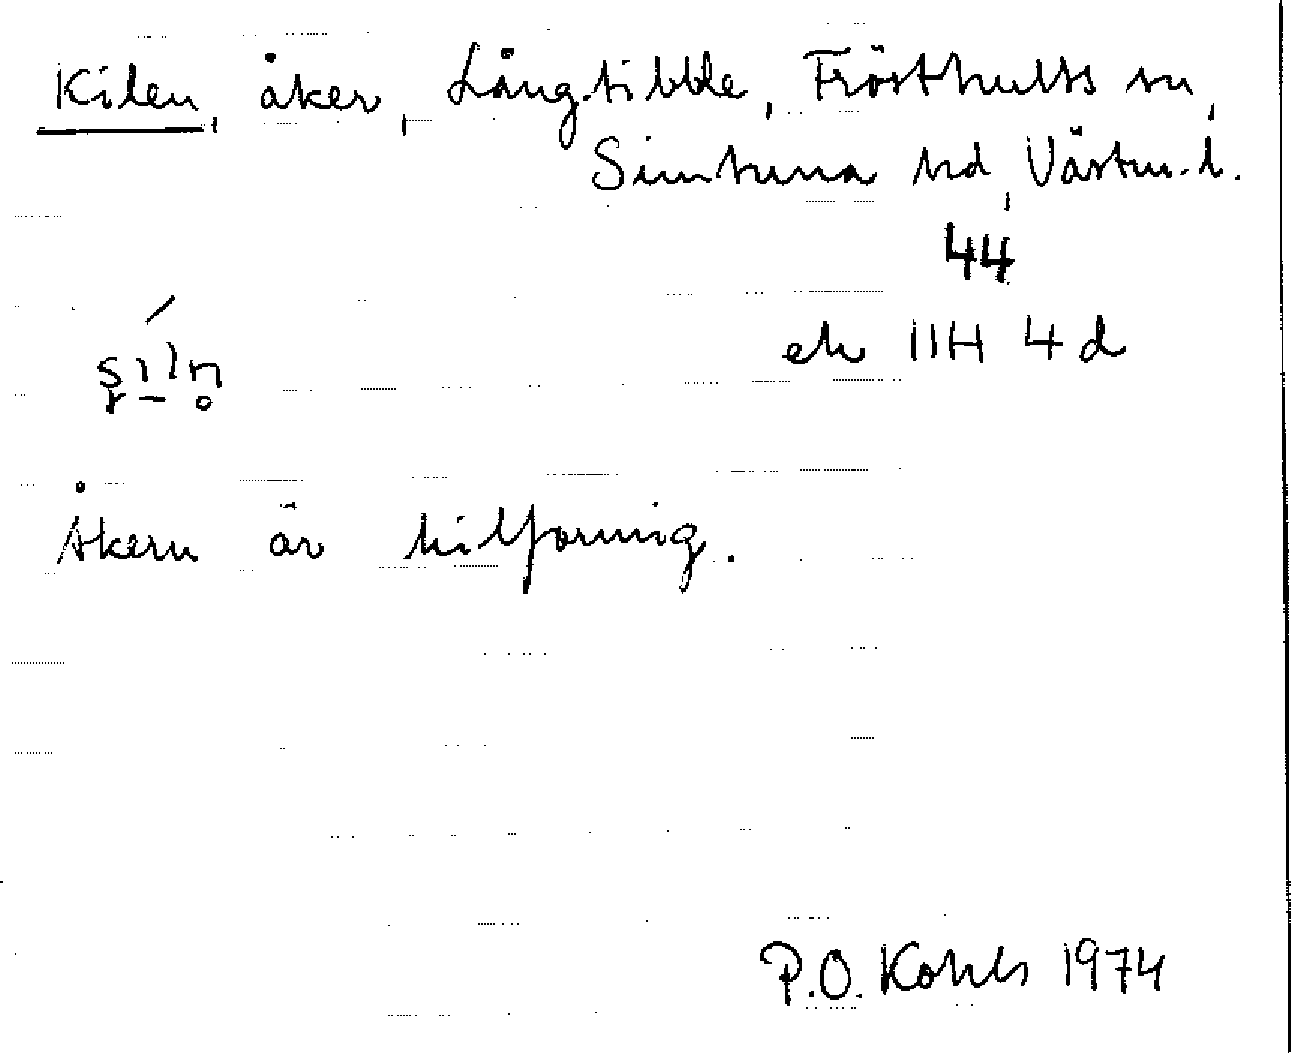 Kilen, åker, Långtibble, Frösthults sn,
Simtuna hd, Västm. l.
44
ek 11H 4 d
Åkern är kilformig.
P.O. Kohls 1974